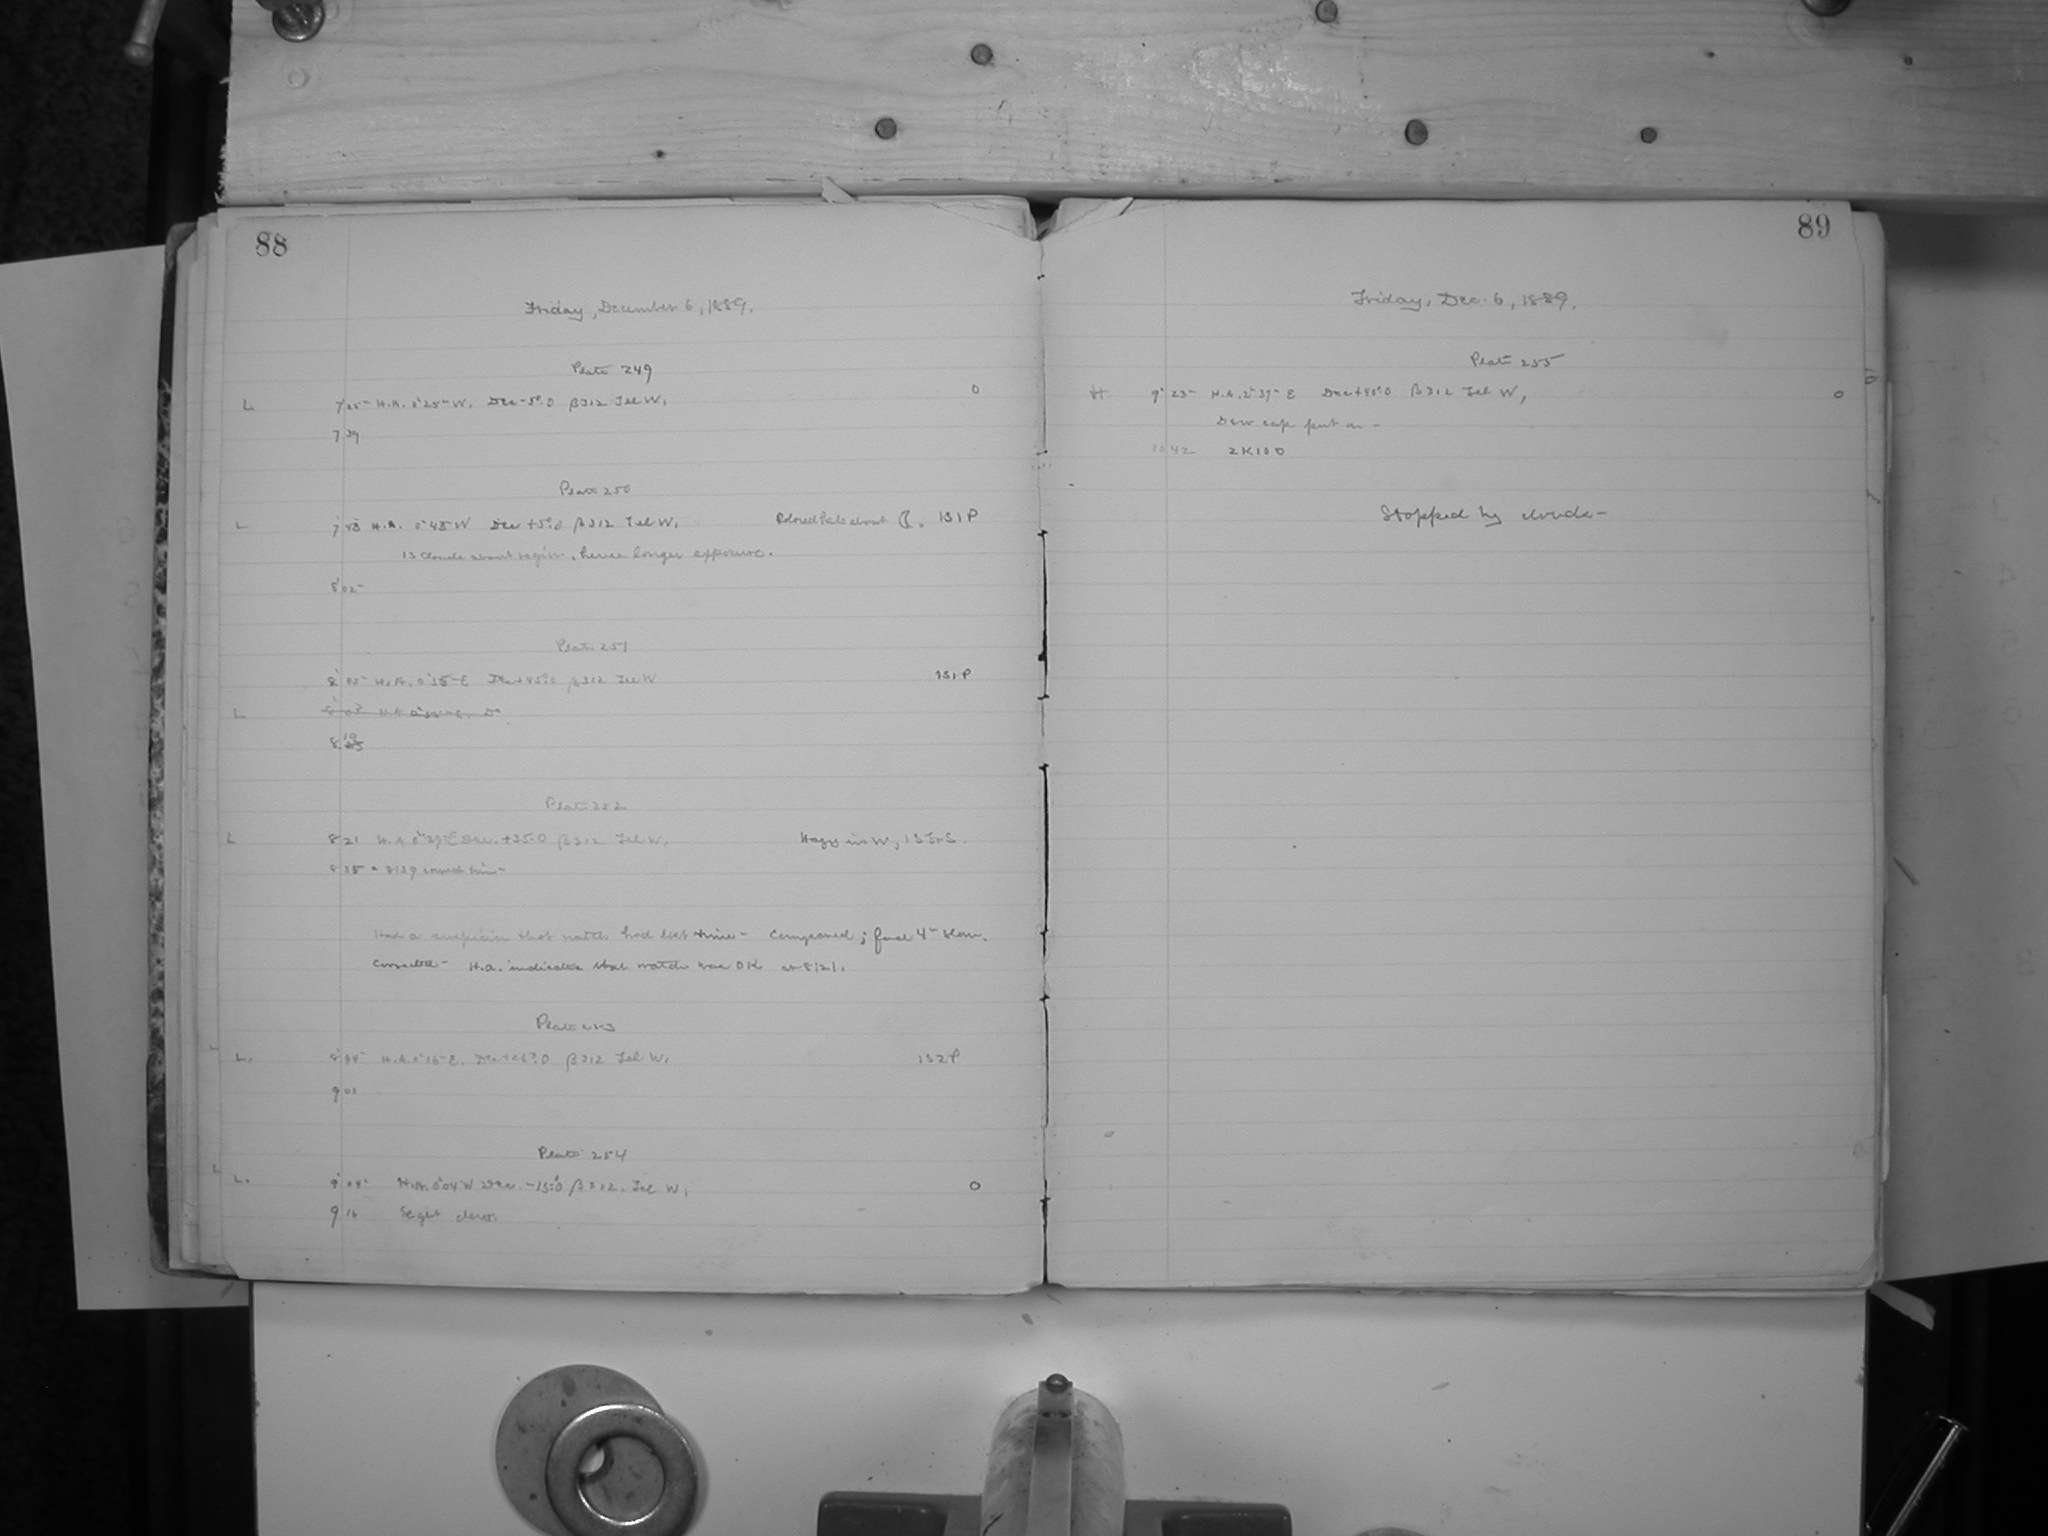 88
Friday, December 6, 1889.
Plate 249
L. 7 25 H.A. 0 25 W. Dec -5°.0 β312 Tel W. 0
7 39
Plate 250
L 7 43 H.A. 0 43 W Dec +5°.0 β312 Tel W. about 1S1P
1S clouds about region, hence longer exposure.
8 02
Plate 251
8 05 H.A. 0 35 E Dec +45°.0 β312 Tel W 1S1P
L
8 19
Plate 252
L 8 21 H.A. 0 39 E Dec. +35.0 β312 Tel W. Hazy in W, 1S
8 35 = 8:39 correct time
Had a suspicion that watch had lost time - Compared; found 4m slow.
Corrected - H.A. indicates that watch was OK at 8:21.
Plate 253
L. H.A. 0 16 E. Dec +26°.0 β312 Tel W. 1S2P
9 01
Plate 254
L. 9 04 H.A. 0 04 W Dec. -15°.0 β312. Tel W. 0
9 16 dew.
89
Friday, Dec. 6, 1889.
Plate 255
9 23 H.A. 2 37 E Dec +40°.0 β312 Tel W, 0
Dew cap put on -
10 42 2K100
Stopped by clouds -